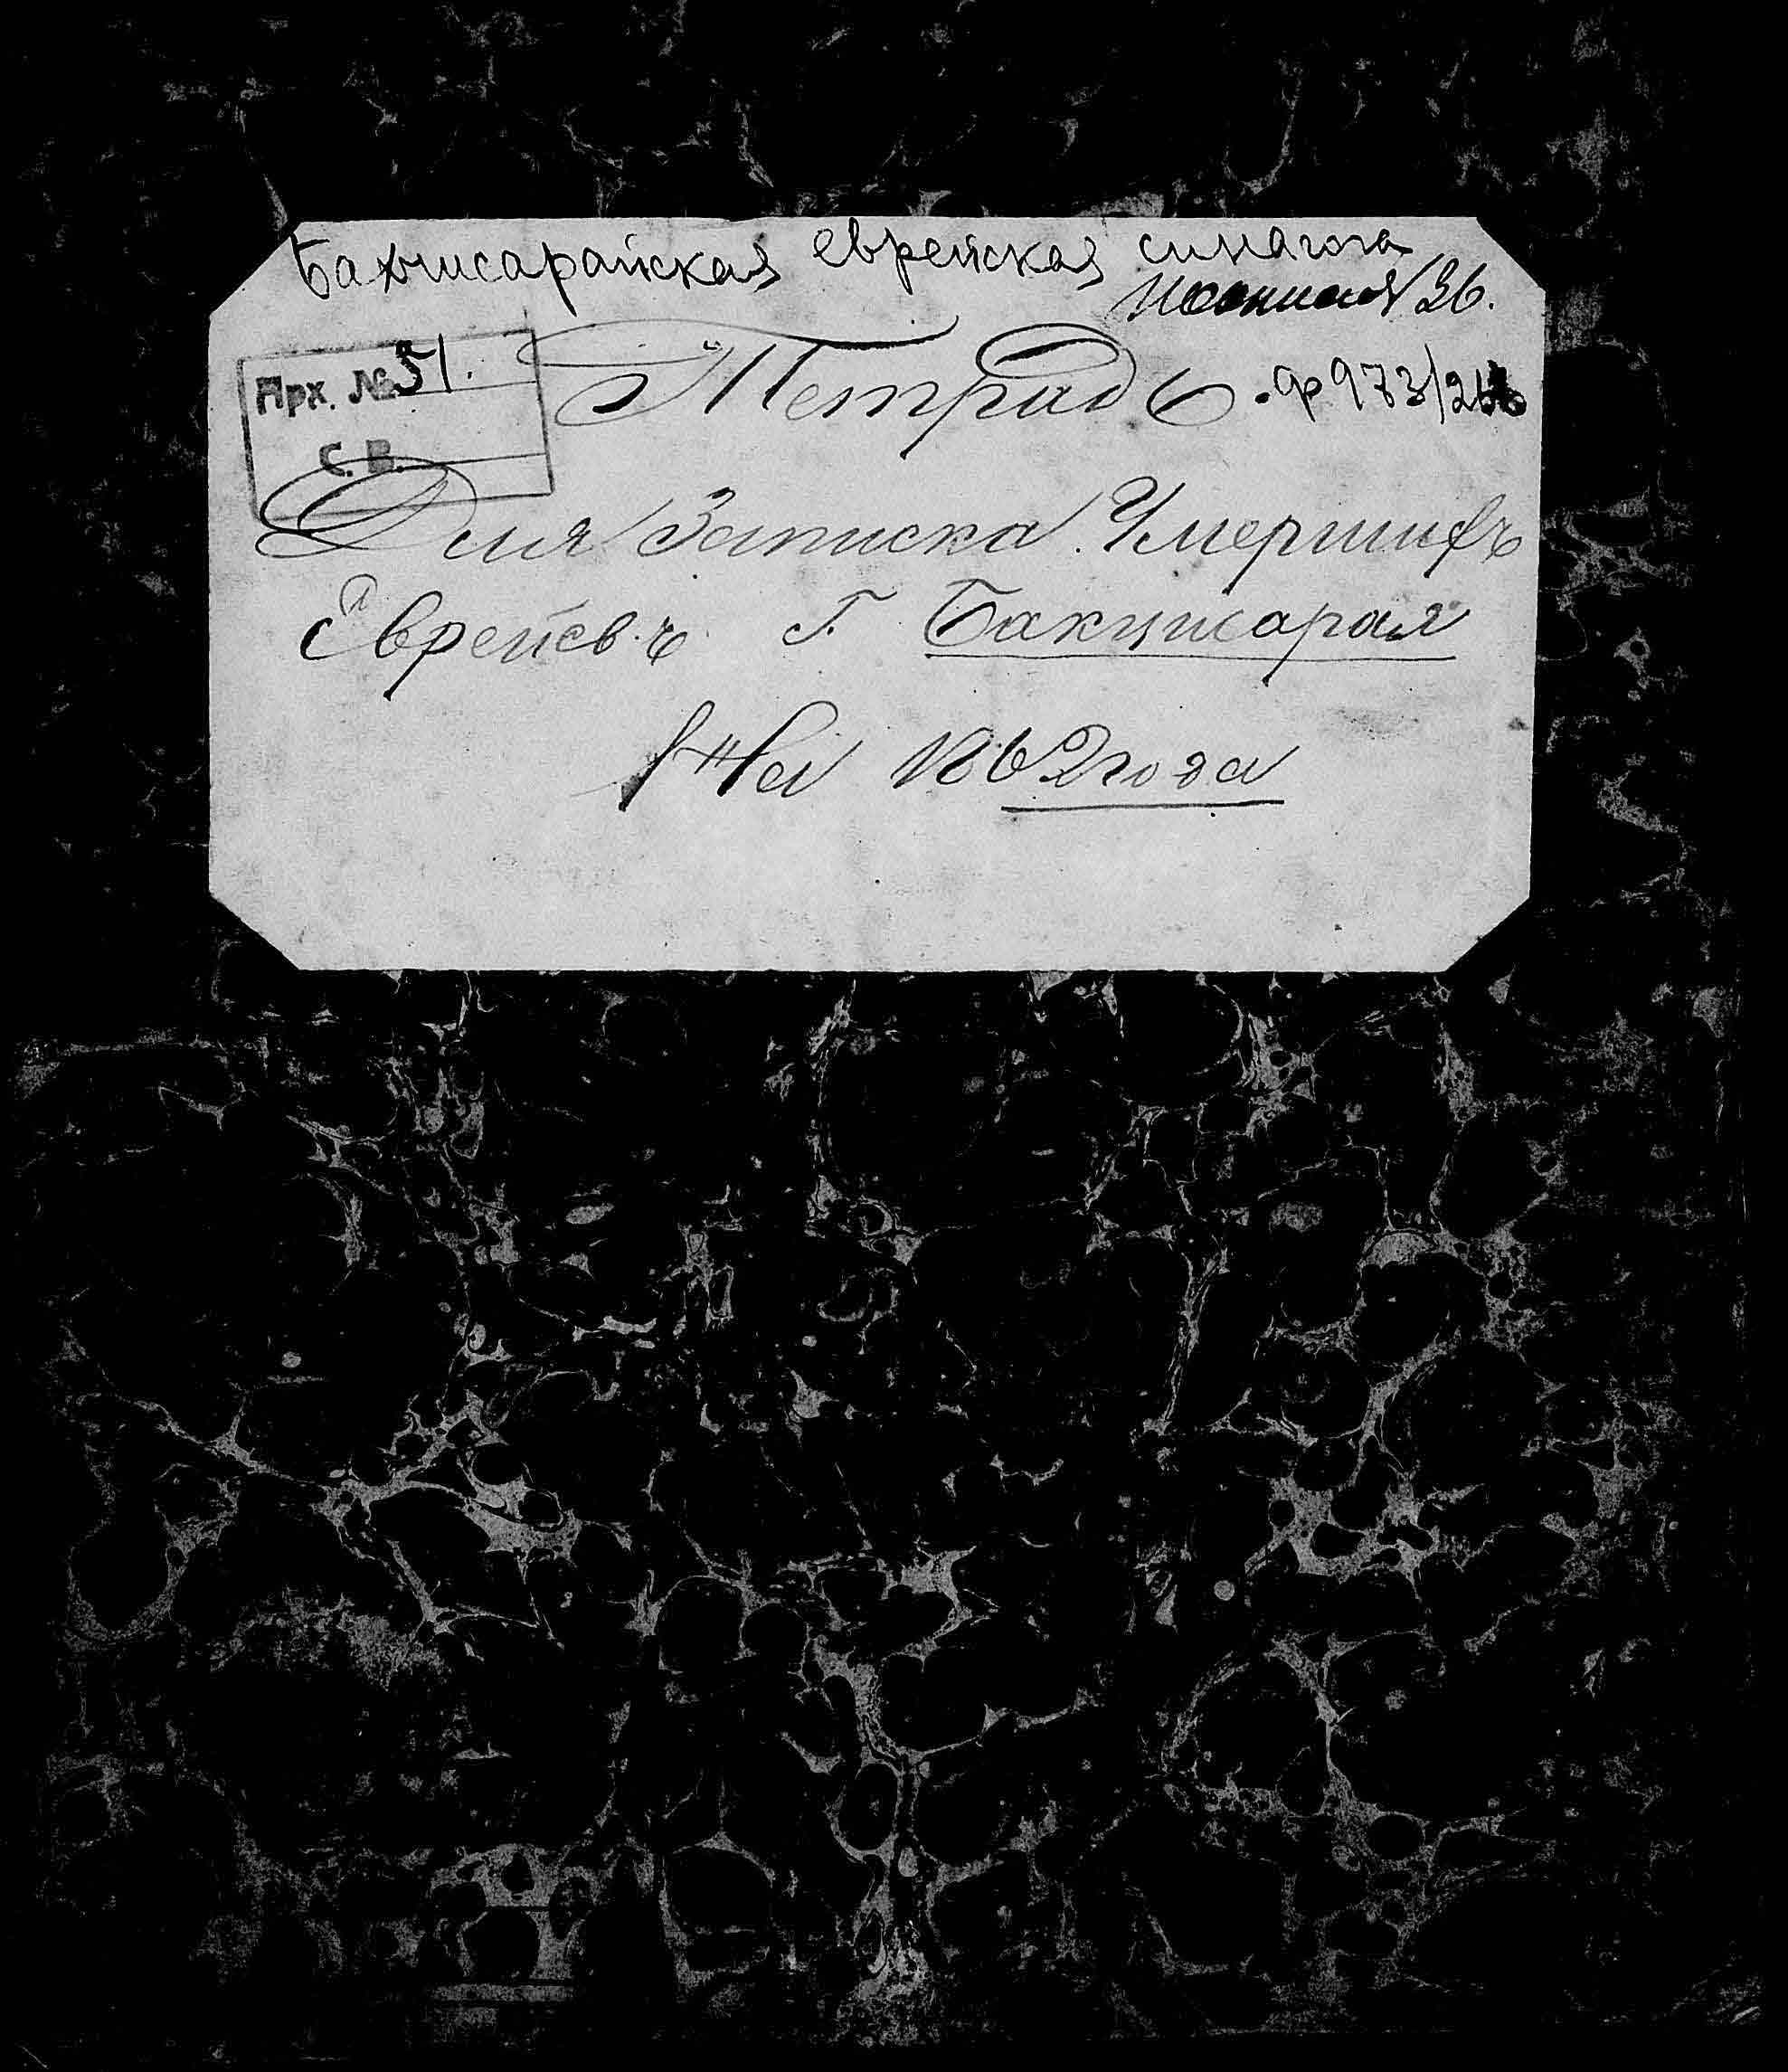 Бахчисарайская еврейская синагога
№ 36.
Прх. № 51.
С. В.
Тетрадь
ф 973/
Для Записка Умершихъ
Еврейевъ Г. Бакцисарая
На 1862 года